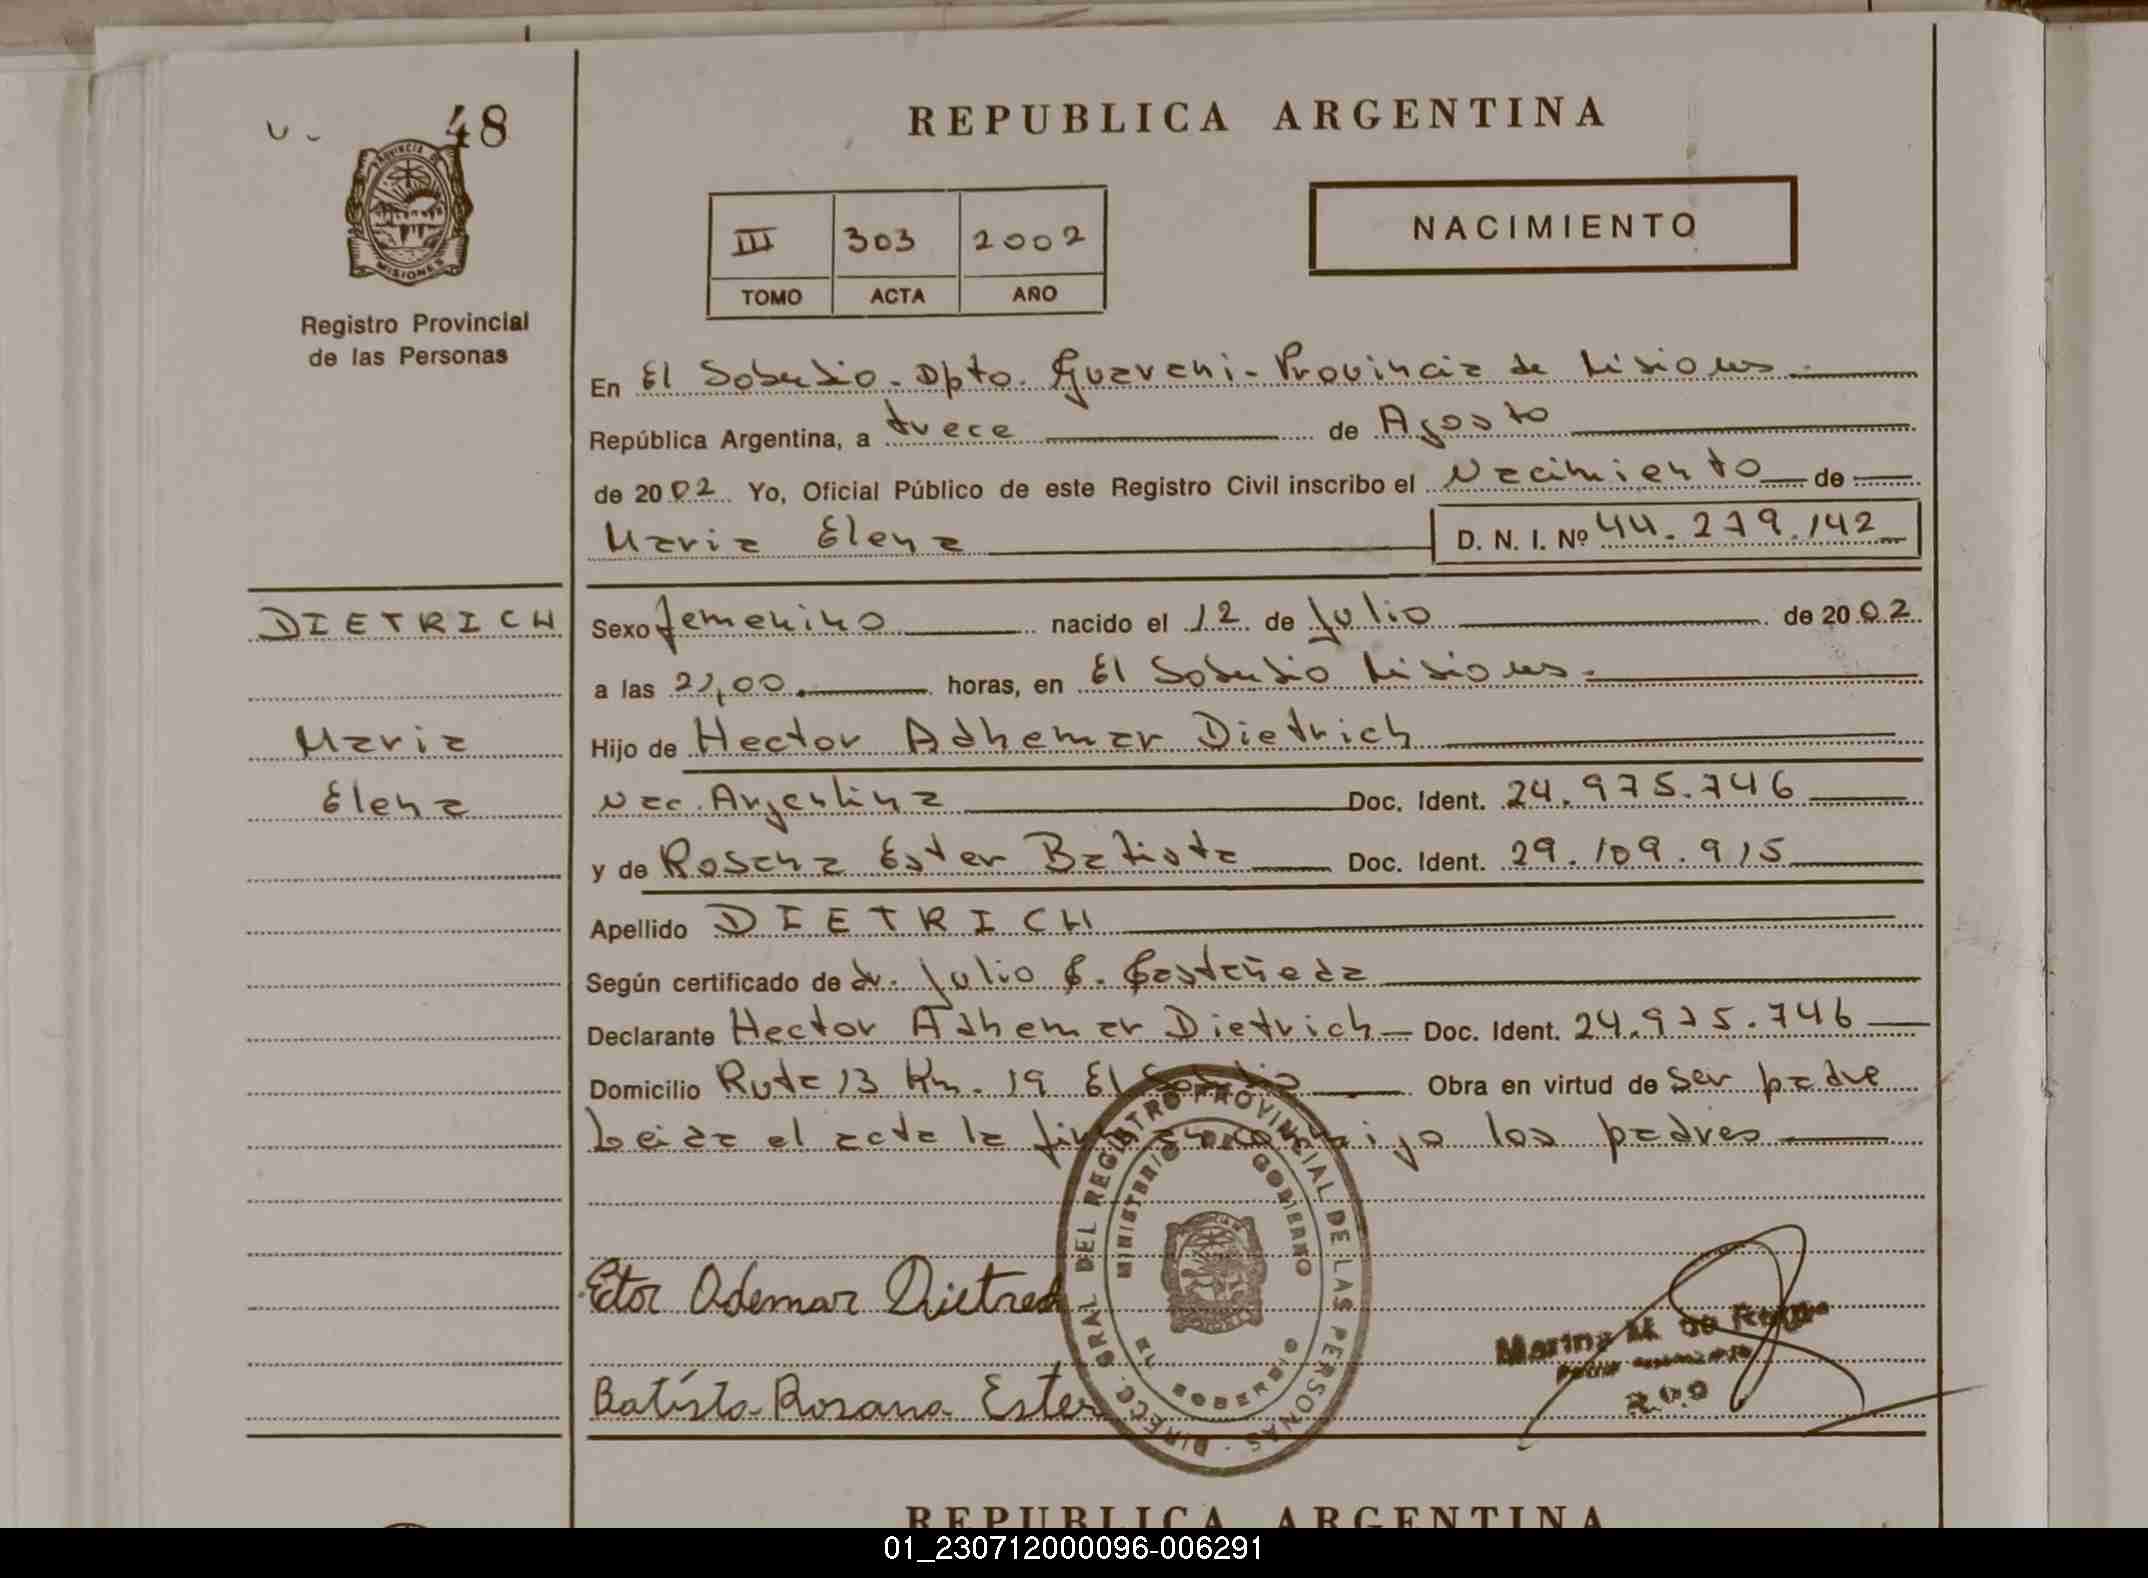 48
PROVINCIA DE
MISIONES
Registro Provincial
de las Personas
REPUBLICA ARGENTINA
III 303 2002
TOMO ACTA AÑO
NACIMIENTO
En El Soberbio - Dpto. Guarani - Provincia de Misiones.
República Argentina, a trece de Agosto
de 2002 Yo, Oficial Público de este Registro Civil inscribo el Nacimiento de
Maria Elena D. N. I. Nº 44.279.142
DIETRICH
Maria
Elena
Sexo femenino nacido el 12 de Julio de 2002
a las 21,00 horas, en El Soberbio Misiones.
Hijo de Hector Adhemar Dietrich
Nac. Argentina Doc. Ident. 24.975.746
y de Rosana Ester Batista Doc. Ident. 29.109.915
Apellido DIETRICH
Según certificado de dr. Julio C. Castañeda
Declarante Hector Adhemar Dietrich Doc. Ident. 24.975.746
Domicilio Ruta 13 Km. 19 El Soberbio Obra en virtud de ser padre
Leida el acta la firman conmigo los padres
Etor Ademar Dietrech
Batista Rosana Ester
DIRECC. GRAL DEL REGISTRO PROVINCIAL DE LAS PERSONAS
MINISTERIO DE GOBIERNO
EL SOBERBIO
Marina M. de
REPUBLICA ARGENTINA
01_230712000096-006291